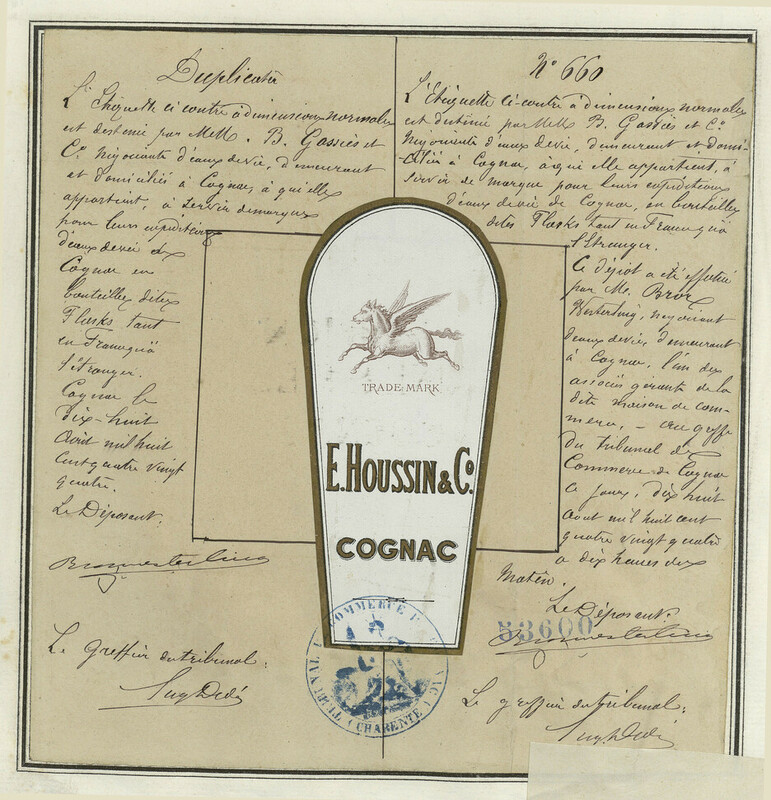 Duplicata
L'Etiquette ci contre à dimensions normales
est destinée par MeM. B. Gassies et
Co Négociants d'eaux de vie, demeurant
et domiciliés à Cognac, à qui elle
appartient, à servir de marque
pour leurs expéditions
d'eaux de vie de
Cognac en
bouteilles dites
Flasks tant
en France qu'à
l'Etranger.
Cognac le
dix-huit
Avril mil huit
cent quatre vingt
quatre.
Le Déposant.
Le Greffier du tribunal:
No 660
L'Etiquette ci-contre à dimensions normales
est destinée par MeM B. Gassies et Co
Négociants d'eaux de vie, demeurant et domi-
-ciliés à Cognac, à qui elle appartient, à
servir de marque pour leurs expéditions
d'eaux de vie de Cognac, en bouteilles
dites Flasks tant en France qu'à
l'Etranger.
Ce dépôt a été effectué
par Mr. Bror
Westerling, négociant
d'eaux de vie, demeurant
à Cognac, l'un des
associés gérants de la
dite maison de com-
merce, - au greffe
du tribunal de
Commerce de Cognac
ce jour, dix huit
Avril mil huit cent
quatre vingt quatre
à dix heures du
Matin.
Le Déposant.
53600
Le greffier du tribunal:
TRADE MARK
E. HOUSSIN & Co.
COGNAC
TRIBUNAL COMMERCE
(CHARENTE)